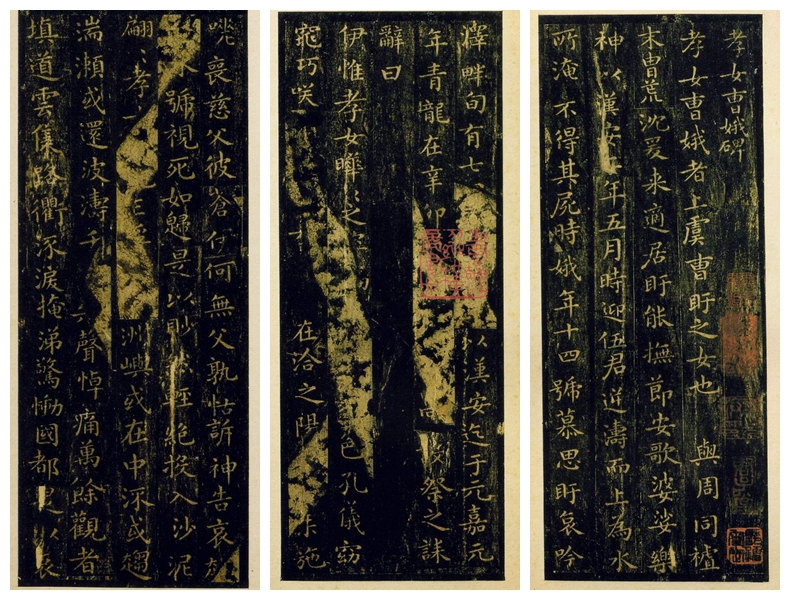 孝女曹娥碑
孝女曹娥者上虞曹盱之女也 與周同禮
末胄荒沈爰来適居盱能撫節安歌婆娑樂
神以漢安二年五月時迎伍君逆濤而上為水
所淹不得其屍時娥年十四號慕思盱哀吟
澤畔旬有七 以漢安迄于元嘉元
年青龍在辛卯 祭之誄
辭曰
伊惟孝女曄曄之 色孔儀窈
窕巧咲 在洽之陽 施
嗟喪慈父彼蒼伊何無父孰怙訴神告哀
號視死如歸是以眇 輕絕投入沙泥
翩翩孝 洲嶼或在中流或趨
湍瀨或還波濤千 失聲悼痛萬餘觀者
填道雲集路衢流淚掩涕驚慟國都是以哀